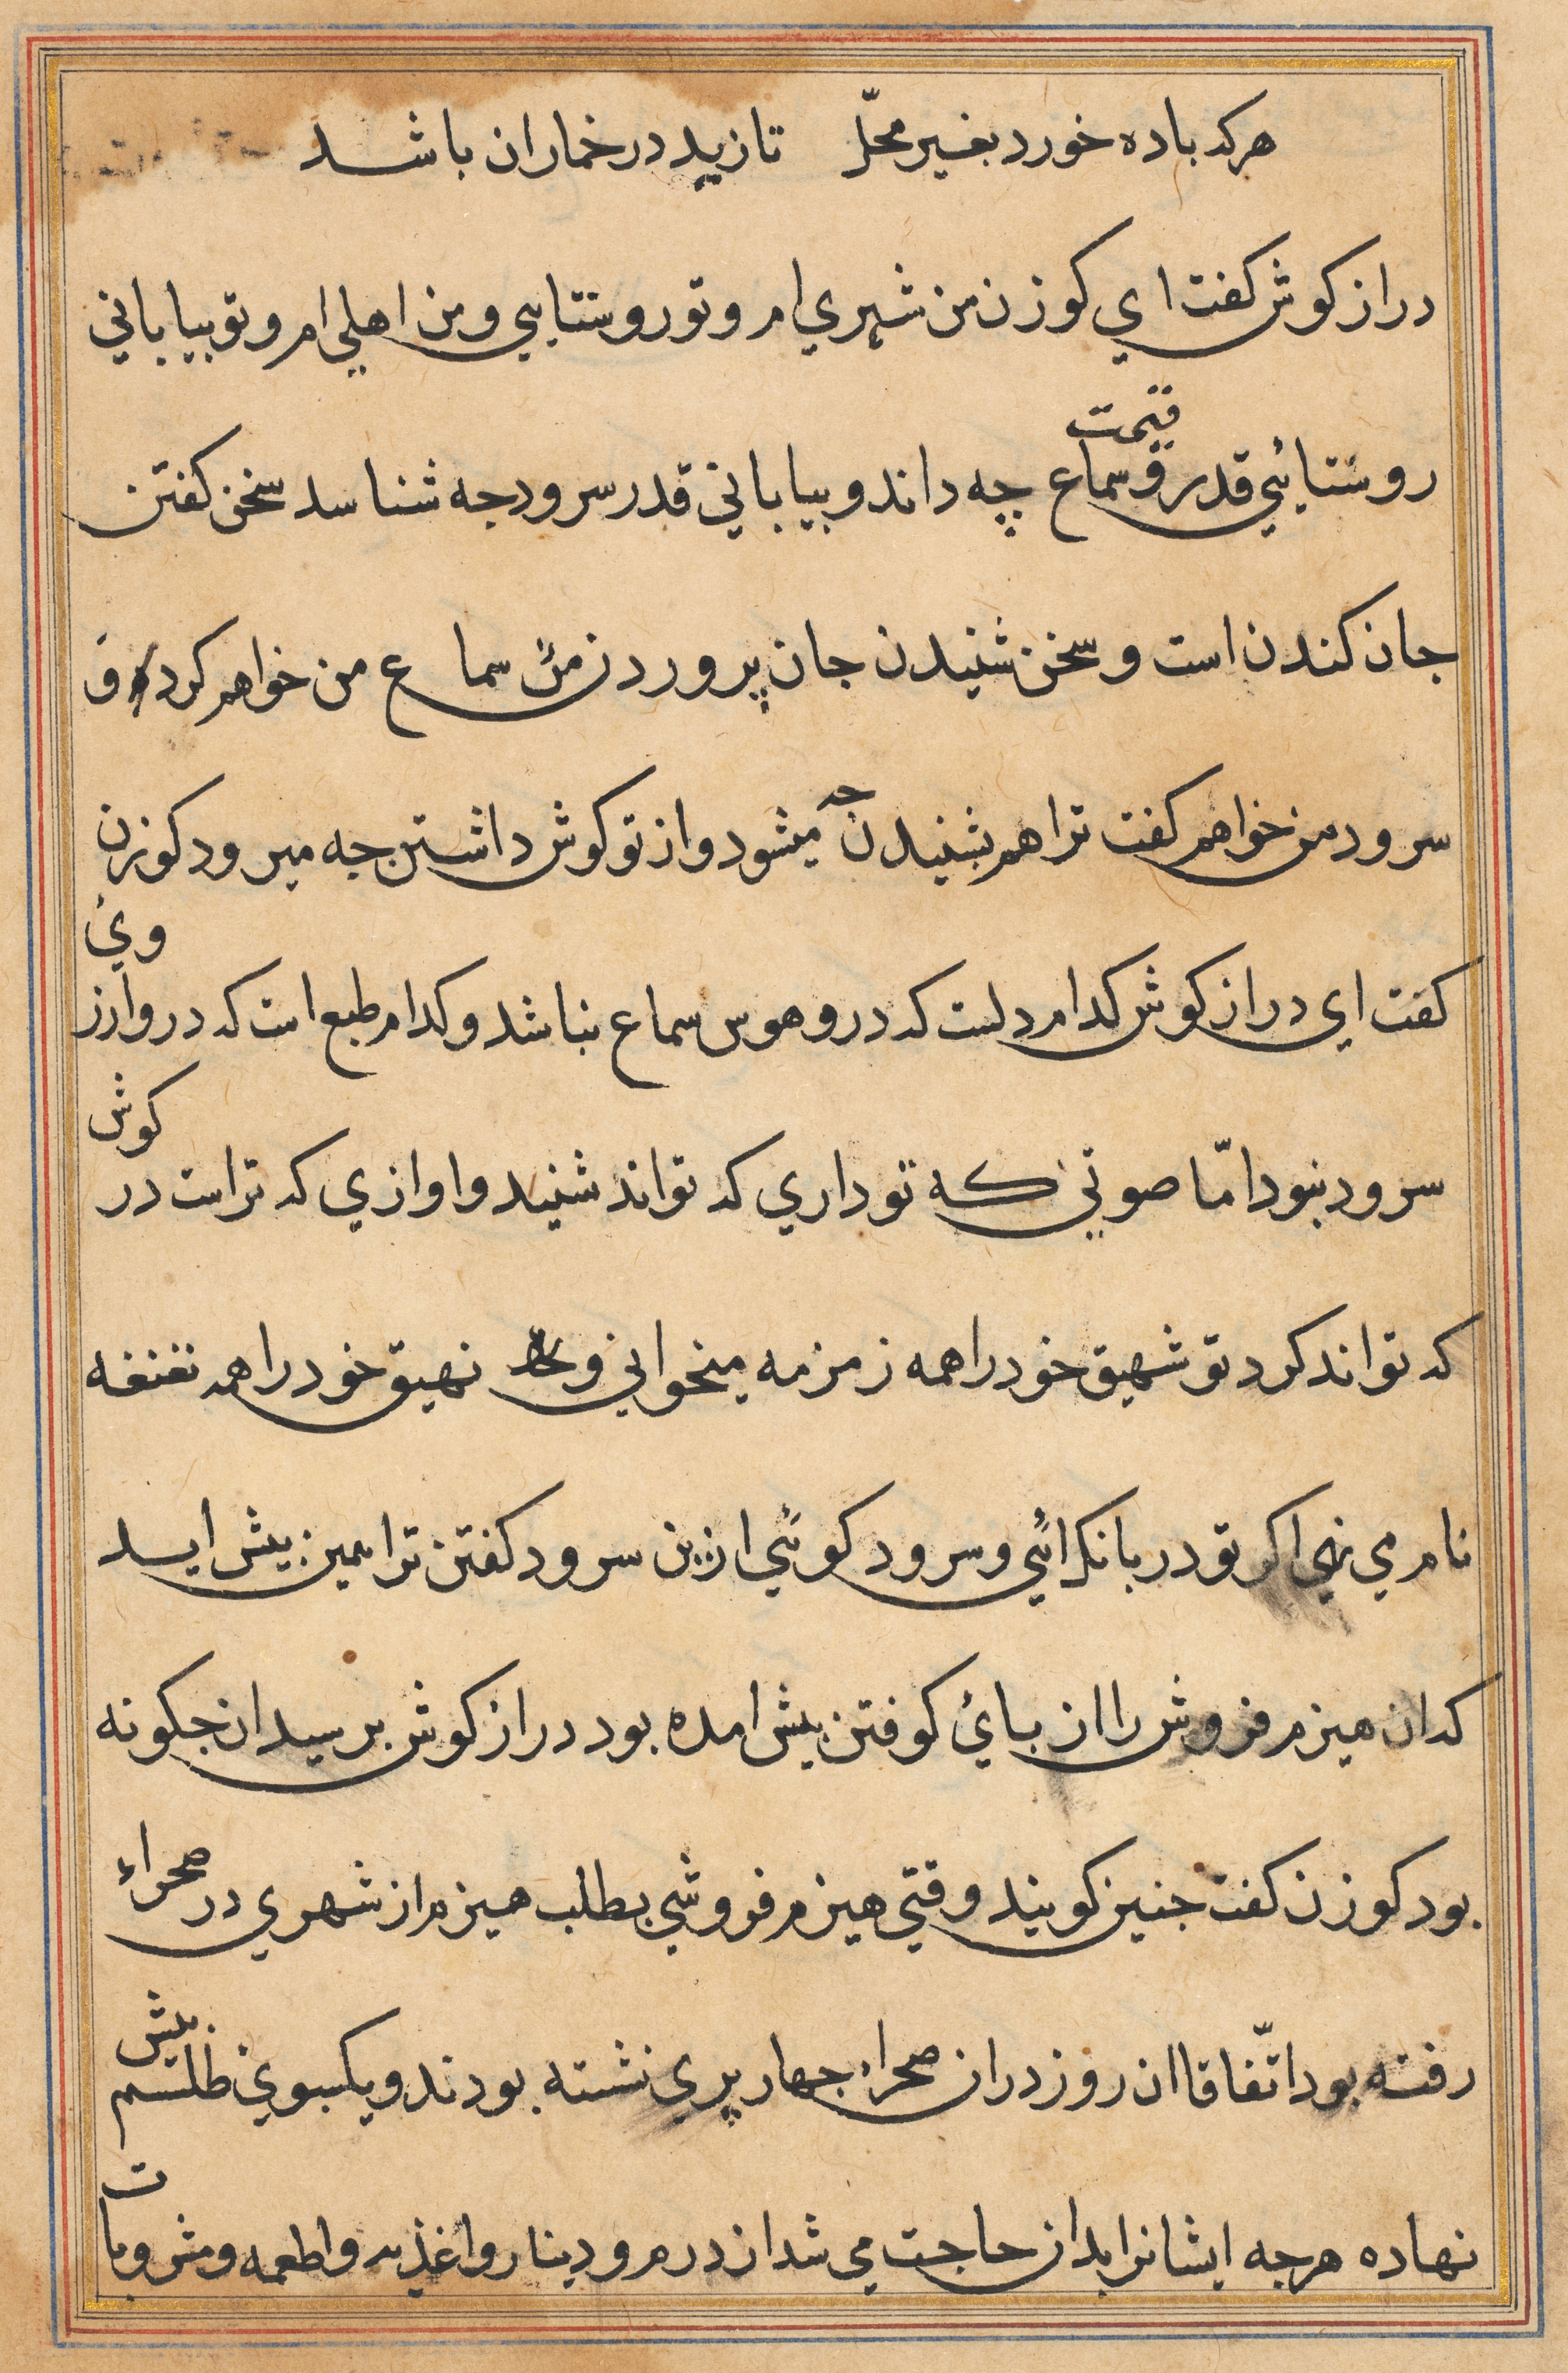 هرکه باده خورد بغیر محلّ تا زید در خماران باشد
دراز کوش کفت ای کوزن من شهری ام و تو روستایی و من اهلی ام و تو بیابانی
روستایی قدر و قیمت سماع چه داند و بیابانی قدر سرود جه شناسد سخن کفتن
جان کندن است و سخن شنیدن جان پروردن من سماع من خواهم کرد و
سرود من خواهم کفت ترا هم بشنیدن جه میشود و از تو کوش داشتن جه میرود کوزن
کفت ای دراز کوش کدام دلست که درو هوس سماع نباشد و کدام طبع است که درو ارزوی
سرود نبود امّا صوتی که تو داری که تواند شنید و اوازی که تراست در کوش
که تواند کرد تو شهیق خود را همه زمزمه میخوانی و نهیق خود را همه نغنغه
نام می نهی اکر تو در بانک ائی و سرود کوئی ازین سرود کفتن ترا همین پیش ایسد
که ان هیزم فروش را از بای کوفتن پیش امده بود دراز کوش برسید ان جکونه
بود کوزن کفت جنین کویند وقتی هیزم فروشی بطلب هیزم از شهری در صحراء
رفته بود اتّفاقا ان روز در ان صحراء جهار پری نشسته بودند و یکسبوی طلسم پیش
نهاده هرجه ایشانرا بدان حاجت می شد از درم و دینار و اغذیه و اطعمه و مشروبات